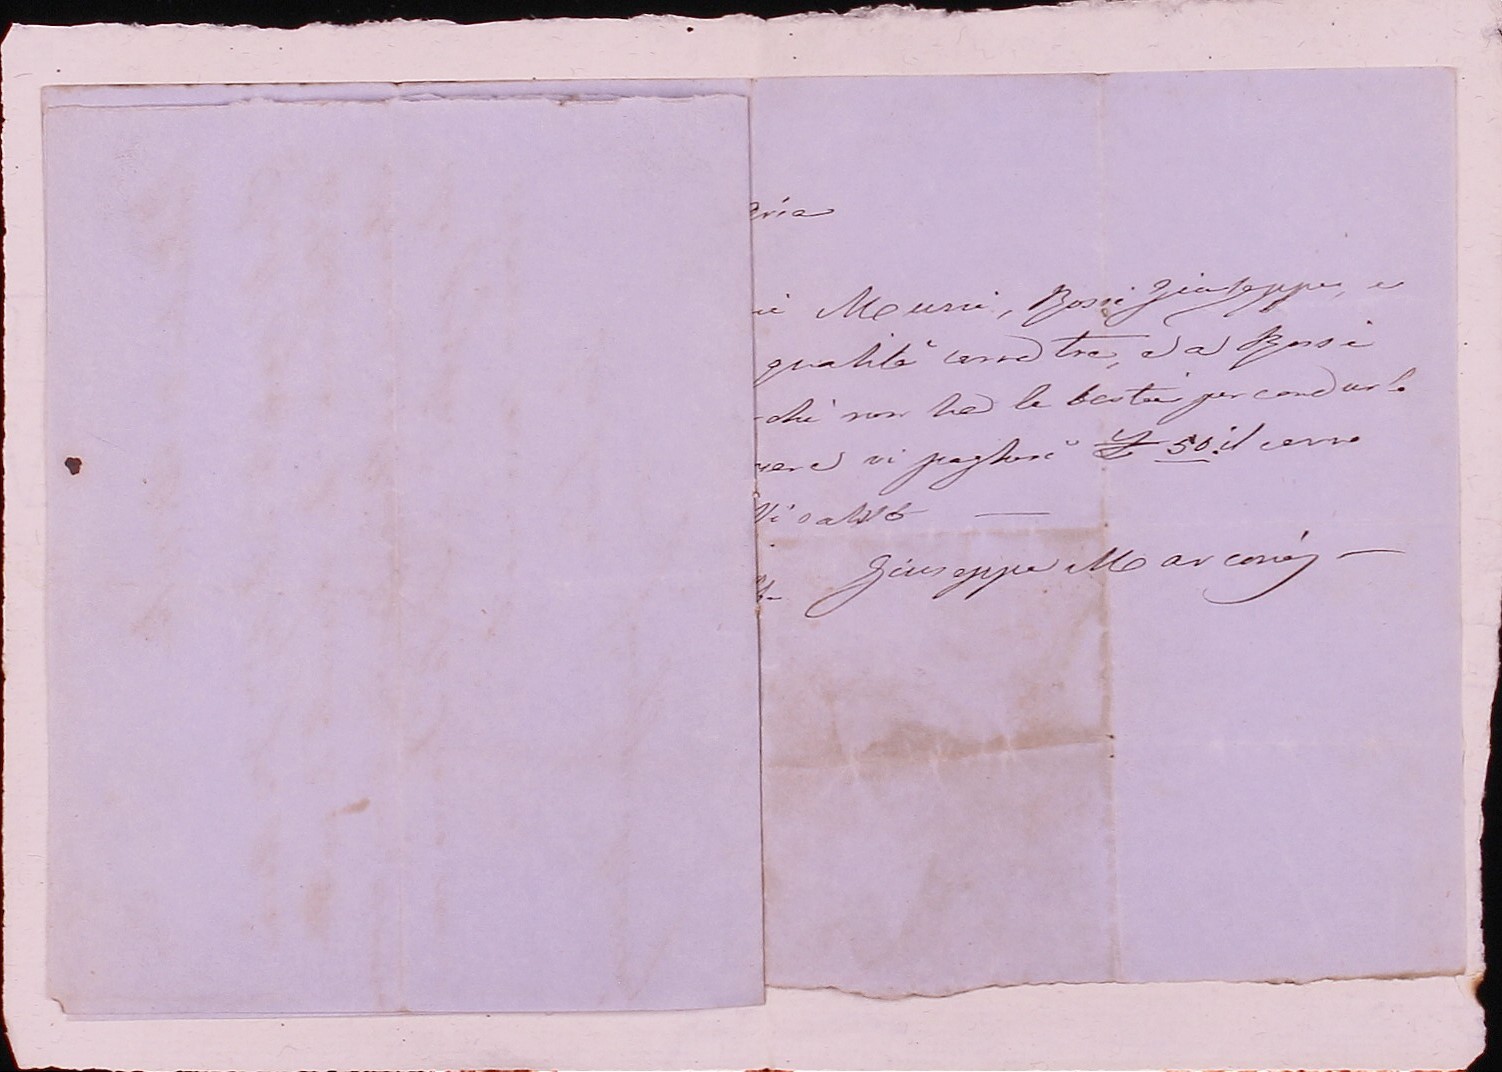 ria
ni Murri, Rossi Giuseppe, e
qualità carra tre, e a Rossi
chè non ha le bestie per condurle
vi pagherò £ 50. il carro
Vi saluto —
Giuseppe Marconi —